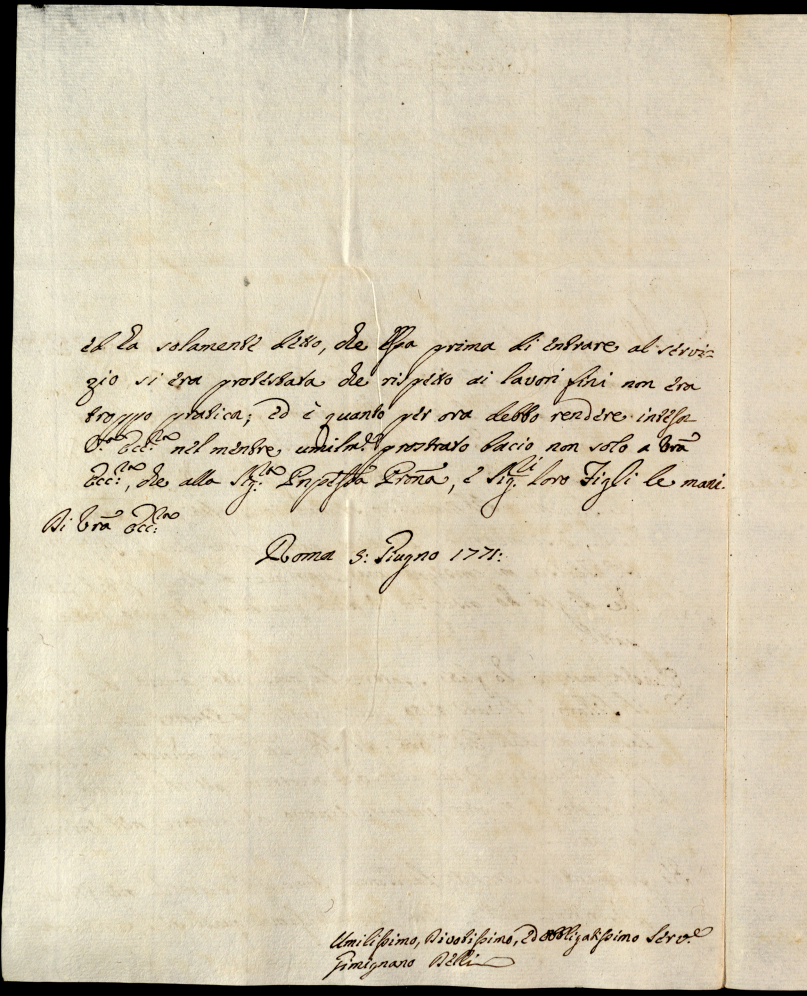 ed ha solamente detto, che Essa prima di entrare al servi=
zio si era protestata che rispetto ai lavori fini non era
troppo pratica; ed è quanto per ora debbo rendere intesa
V.ra Ecc.za nel mentre umilm.te prostrato bacio non solo a Vrā
Ecc.za, che alla Sig.ra Pnp̄essa Pron̄a, e Sig.ri loro Figli le mani.
Di Vrā Ecc.za
Roma 5: Giugno 1771:
Umilissimo, Divotissimo, Ed obbligatissimo Serv.e
Gimignano Belli